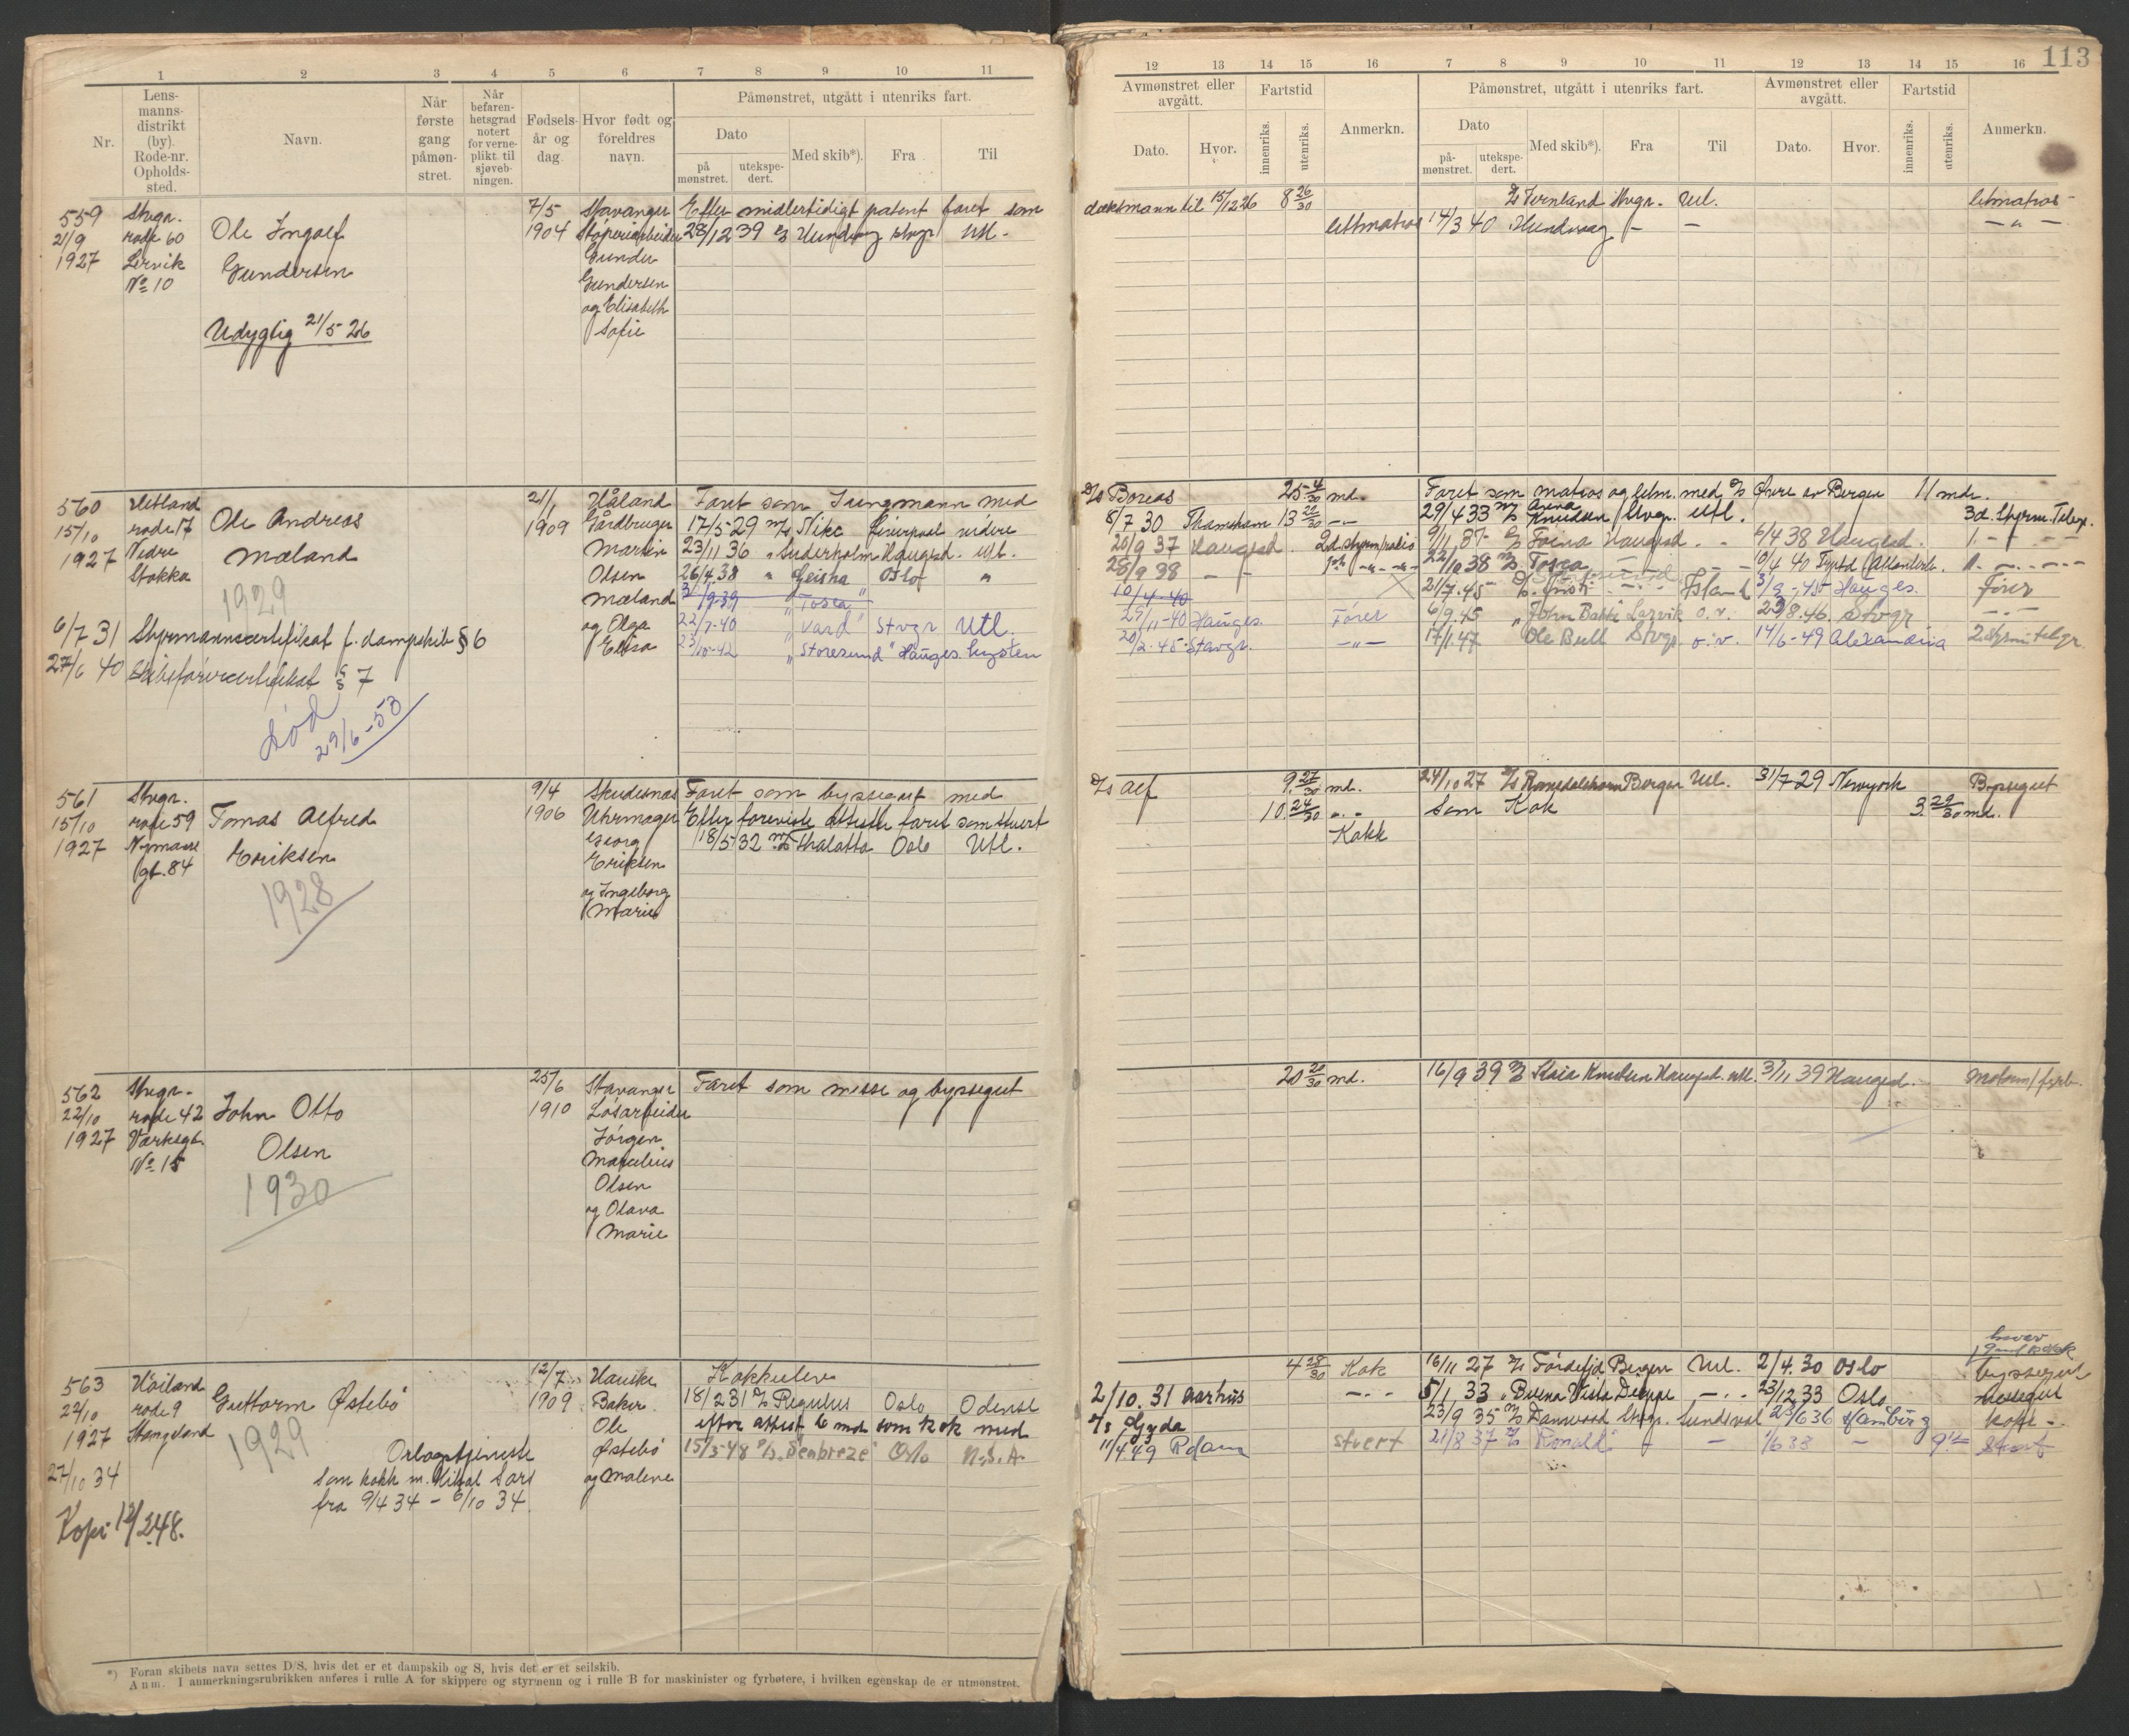 113
1 2 3 4 5 6 7 8 9 10 11
Nr.
Lens-
manns-
distrikt
(by).
Rode-nr.
Opholds-
sted.
Navn.
Når
første
gang
påmøn-
stret.
Når
befaren-
hetsgrad
notert
for verne-
plikt. til
sjøveb-
ningen.
Fødsels-
år og
dag.
Hvor født og
foreldres
navn.
Påmønstret, utgått i utenriks fart.
Dato
på
mønstret.
utekspe-
dert.
Med skib*).
Fra
Til
12 13 14 15 16 7 8 9 10 11 12 13 14 15 16
Avmønstret eller
avgått.
Dato.
Hvor.
Fartstid
innenriks.
utenriks.
Anmerkn.
Påmønstret, utgått i utenriks fart.
Dato
på-
mønstret.
utekspe-
dert.
Med skib*).
Fra
Til
Avmønstret eller
avgått.
Dato.
Hvor.
Fartstid
innenriks.
utenriks.
Anmerkn.
559
21/9
1927
Stvgr.
rode 60
Lervik
No 10
Ole Ingolf
Gundersen
Udygtig 21/5 26
7/5
1904
Stavanger
Støperiarbeider
Gunder
Gundersen
og Elisabeth
Sofie
Efter midlertidigt patent faret som
28/12 39 Hundvaag Stvgr Utl.
dæksmann til 15/12 26 8 26/30
lettmatros 14/3 40 Hundvaag - -
Stvgr. Utl. letmatros
- " -
560
15/10
1927
Hetland
rode 17
Nedre
Stokka
Ole Andreas
Mæland
1929
6/7 31 Styrmannscertifikat f. dampskib § 6
27/6 40 Skibsførercertifikat § 7
død
29/6-53
21/1
1909
Håland
Gårdbruger
Martin
Olsen
Mæland
og Olga
Elisa
Faret som Jungmann med
17/5 29 M/S Nike Liverpool videre
23/11 36 " Suderholm Haugsd. Utl.
26/4 38 " Geisha Oslo "
3/9-39 "Tosca"
22/7-40 "Vard" Stvgr Utl.
23/10-42 "Storesund" Hauges. kysten
D/S Boreas 25 4/30 md.
8/7 30 Thamsham 13 22/30 - -
20/9 37 Haugsd. 2d. styrm/radio
28/9 38 - -
10/4-40
29/11-40 Hauges. Fører
20/2-45 Stavgr. - " -
Faret som matros og letm. med D/S Øvre av Bergen 11 mdr.
29/4 33 M/S Anna Knudsen Stvgr. Utl. 3d. Styrm. Telegr.
9/11 37 Haugsd. - - 6/4 38 Haugsd. 1. - -
22/10 38 M/S Tosca - -
21/7-45 Island 3/9-45 Hauges. Fører
6/9.45 "John Bakke" Larvik o.v. 23/8.46. Stvgr - " -
17/1.47 Ole Bull Stvgr o.v. 14/6-49 Alexandria 2 styrm. telgr.
561
15/10
1927
Stvgr.
rode 59
Nymans
gt. 84
Tomas Alfred
Eriksen
1928
9/4
1906
Skudesnes
Uhrmager
Georg
Eriksen
og Ingeborg
Marie
Faret som byssegut med
Efter foreviste attester faret som Stuert
18/5 32 M/S Thalatta Oslo Utl.
D/S Alf 9 27/30 md.
10 24/30 " "
Kokk
24/10 27 D/S Romsdalshorn Bergen Utl. 31/7 29 Newyork Byssegut
Som Kok 3 29/30 md.
562
22/10
1927
Stvgr.
rode 42
Værksgt.
No 15
John Otto
Olsen
1930
25/6
1910
Stavanger
Løsarbeider
Jørgen
Marelius
Olsen
og Olava
Marie
Faret som messe og byssegut
20 20/30 md.
16/9 39 M/S Kaia Knudsen Haugsd. utl. 3/11 39 Haugsd. Motorm/fyrb.
563
22/10
1927
27/10 34
Kopi 12/2 48.
Høiland
rode 9
Stangeland
Guttorm Østebø
1929
Orlogstjeneste
som kokk m. Mikal Sars
fra 9/4 34 - 6/10 34.
12/7
1909
Hauske
Baker
Ole
Østebø
og Malene
Kokkelev
18/2 31 D/S Regulus Oslo Odense
efter attest 6 md som kok med
15/3-48 D/S "Seabreeze" Oslo U.S.A.
4 28/30 Kok
2/10. 31 Aarhus - " -
D/S Gyda
11/4 49 Rdam stuert
16/11 27 D/S Førdefjd Bergen Utl. 2/4. 30 Oslo byssegut
5/1 33 " Buena Vista Dieppe - " - 23/12 33 Oslo
23/9 35 M/S Danwood Stvgr. Sundsval 23/6 36 Hamburg kok -
21/8 37 D/S Ronald - - 1/6 38 - Stuert
*) Foran skibets navn settes D/S, hvis det er et dampskib og S, hvis det er et seilskib.
Anm. I anmerkningsrubrikken anføres i rulle A for skippere og styrmenn og i rulle B for maskinister og fyrbøtere, i hvilken egenskap de er utmønstret.